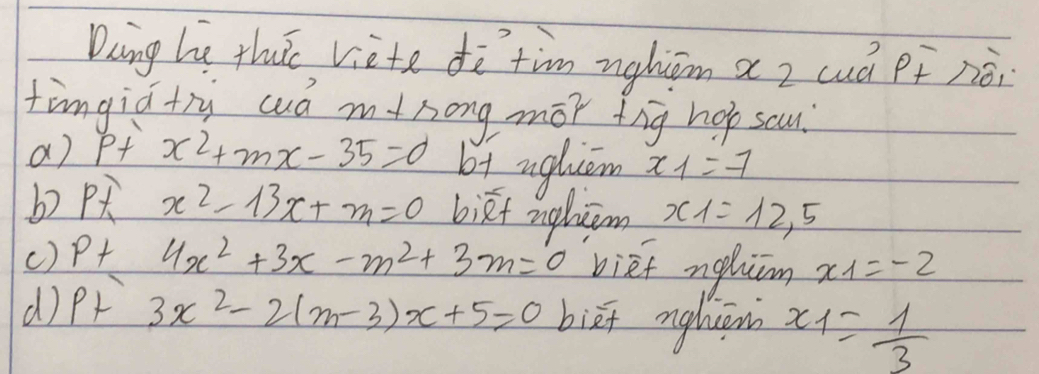 Dùng hệ thức Viète để tìm nghiệm x2 của Pt rồi
tìm giá trị của m trong mỗi trg hợp sau:
a) Pt x²+mx-35=0 bt nghiệm x1=7
b) Pt x²-13x+m=0 biết nghiệm x1=12,5
c) Pt 4x²+3x-m²+3m=0 biết nghiệm x1=-2
d) Pt 3x²-2(m-3)x+5=0 biết nghiệm x1=1/3